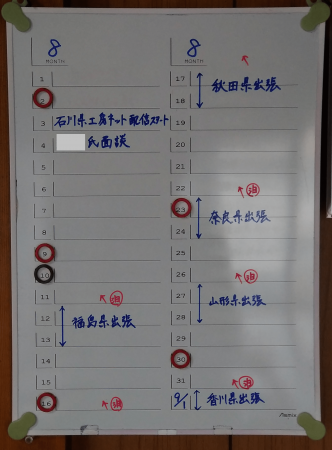 8
MONTH
1
2
3 石川県工房ネット配信スタート
4 氏面談
5
6
7
8
9
10
11 泊
12
福島県出張
13
14
15
16 泊
8
MONTH
17
秋田県出張
18
19
20
21
22 泊
23
奈良県出張
24
25
26 泊
27
山形県出張
28
29
30
31 泊
9/1 香川県出張